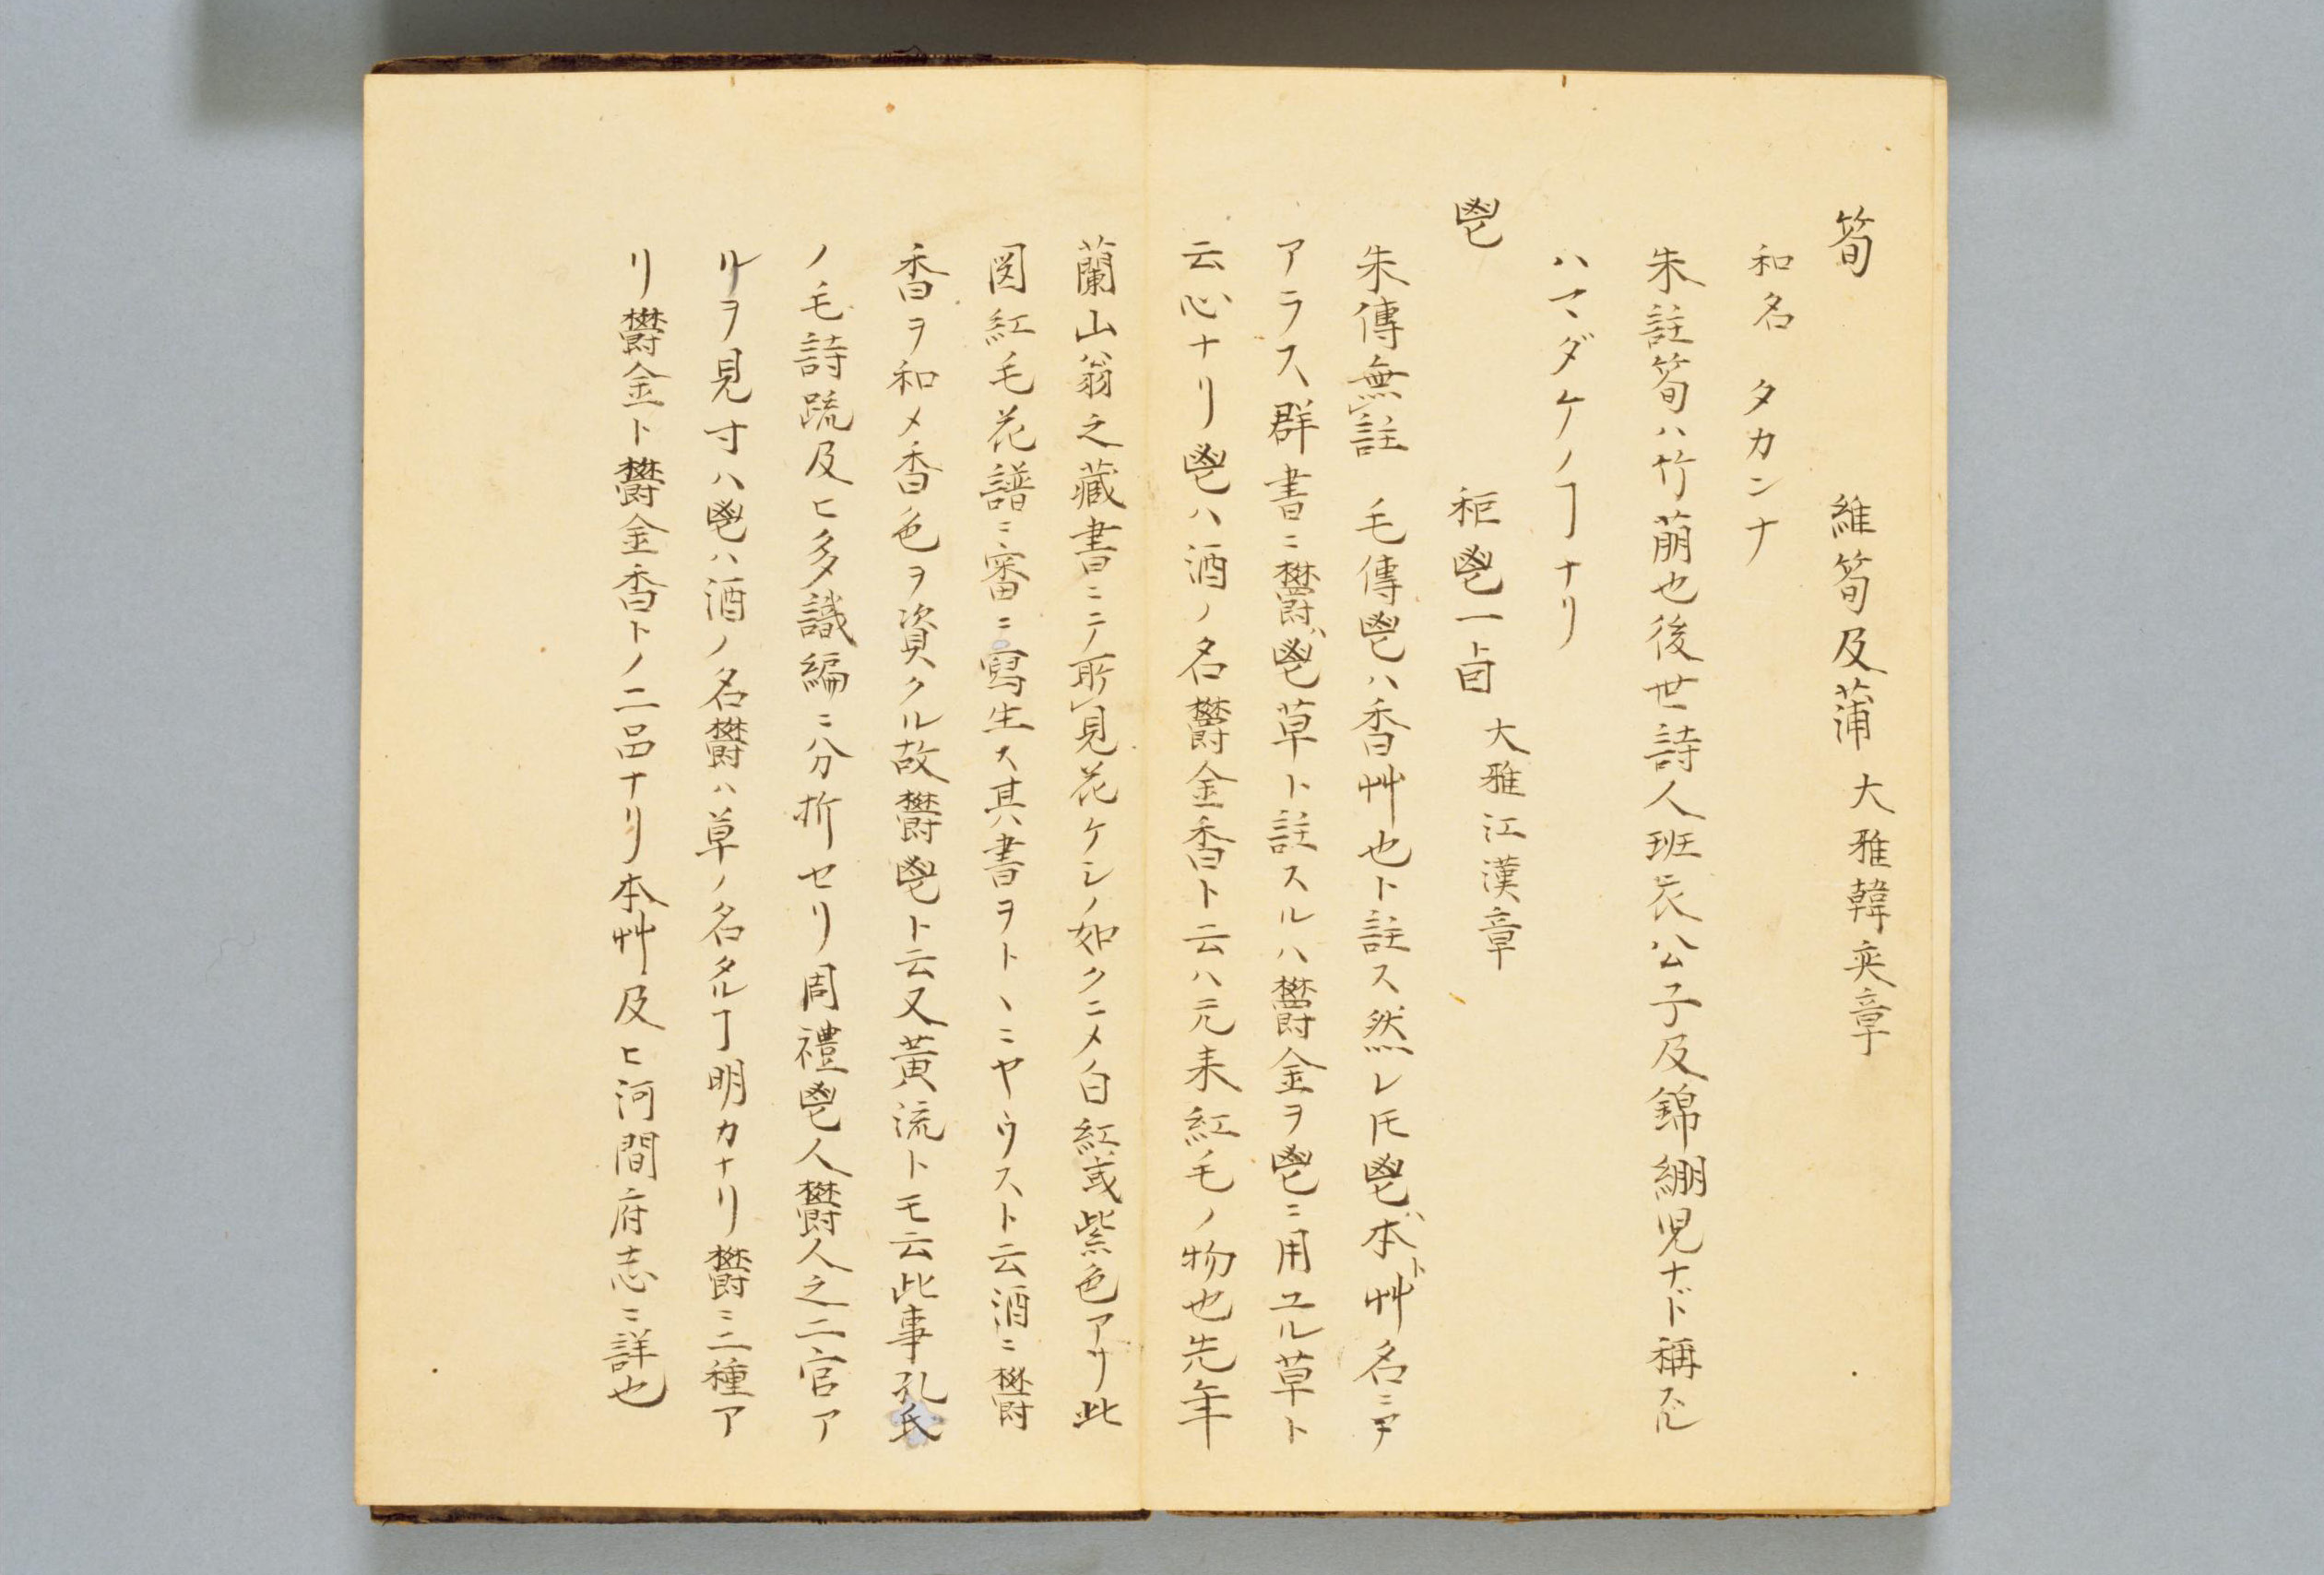 筍　維筍及蒲 大雅韓奕章
和名 タカンナ
朱註筍ハ竹萠也後世詩人班衣公子及錦繃児ナド稱スル
ハマダケノヿナリ
鬯　秬鬯一卣 大雅江漢章
朱傳無註 毛傳鬯ハ香艸也ト註ス然レ𪜈鬯ハ本ト艸名ニテ
アラス群書ニ欝鬯ハ草ト註スルハ欝金ヲ鬯ニ用ユル草ト
云心ナリ鬯ハ酒ノ名欝金香ト云ハ元来紅毛ノ物也先年
蘭山翁之藏書ニテノ所見花ケシノ如クニメ白紅或紫色アリ此
図紅毛花譜ニ審ニ寫生ス其書ヲトヽニヤウスト云酒ニ欝
香ヲ和メ香色ヲ資クル故欝鬯ト云又黄流トモ云此事孔氏
ノ毛詩䟽及ヒ多識編ニ分折セリ周禮鬯人欝人之二官ア
ルヲ見寸ハ鬯ハ酒ノ名欝ハ草ノ名タルヿ明カナリ欝ニ二種ア
リ欝金ト欝金香トノ二品ナリ本艸及ヒ河間府志ニ詳也